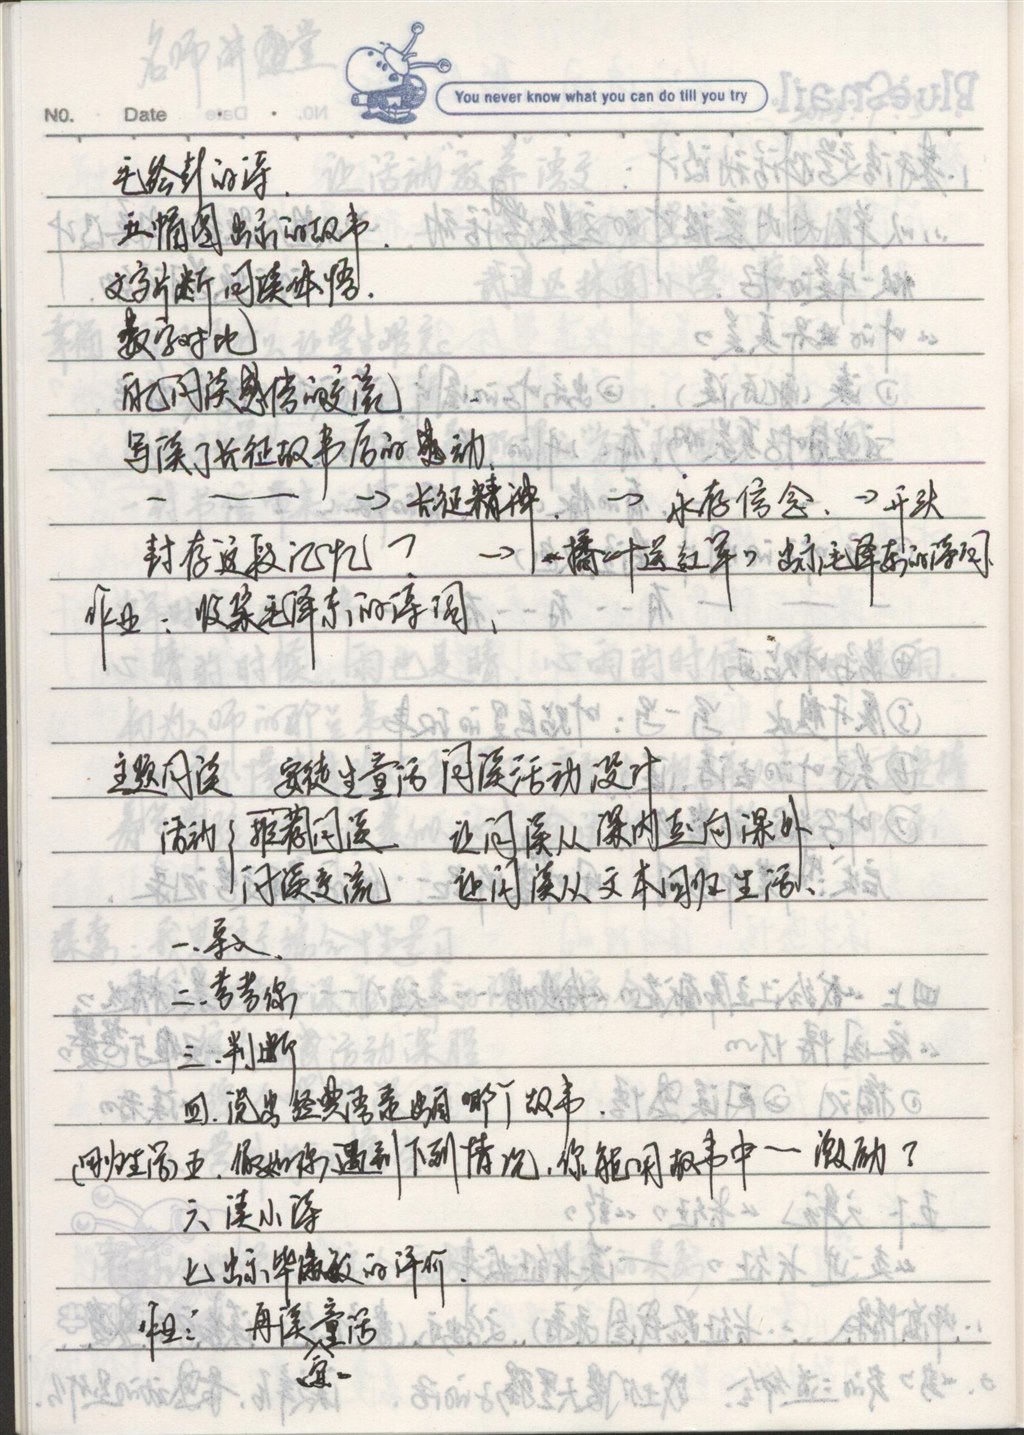 You never know what you can do till you try
NO. Date
毛给彭的诗.
五幅图出示的故事.
文字片断 阅读体悟.
数字对比
配乐阅读 感悟的交流
写读了长征故事后的感动.
一 —— → 长征精神. → 永存信念. → 开头
封存这段记忆? → 播《十送红军》出示毛泽东的诗词.
作业: 收集毛泽东的诗词.
主题阅读 安徒生童话 阅读活动设计.
活动 推荐阅读 让阅读从课内走向课外.
阅读交流 让阅读从文本回归生活.
一. 导入.
二. 考考你
三. 判断
四. 说出经典语录出自哪个故事.
(回归生活) 五. 假如你遇到下列情况, 你能用故事中一激励?
六. 读小诗
七. 出示毕淑敏的评价.
作业: 再读童话